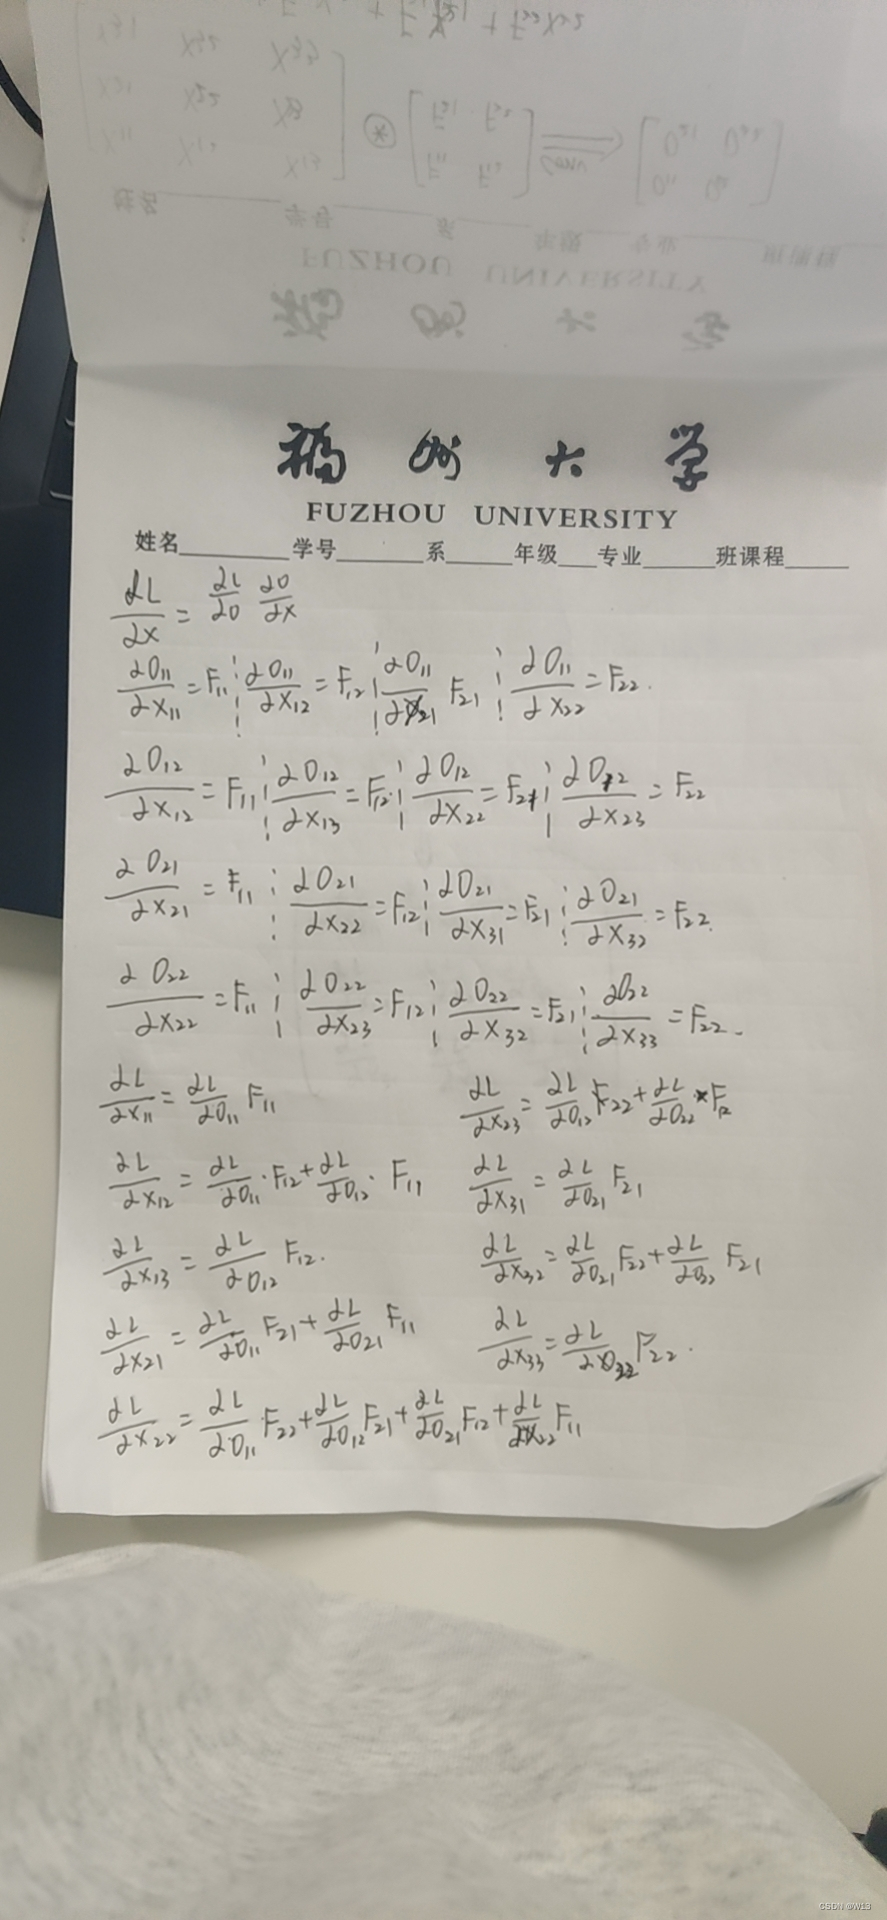 福州大学
FUZHOU UNIVERSITY
姓名 学号 系 年级 专业 班课程
∂L/∂X = ∂L/∂O ∂O/∂X
∂O₁₁/∂X₁₁ = F₁₁ ¦ ∂O₁₁/∂X₁₂ = F₁₂ ¦ ∂O₁₁/∂X₂₁ F₂₁ ¦ ∂O₁₁/∂X₂₂ = F₂₂.
∂O₁₂/∂X₁₂ = F₁₁ ¦ ∂O₁₂/∂X₁₃ = F₁₂. ¦ ∂O₁₂/∂X₂₂ = F₂₁ ¦ ∂O₁₂/∂X₂₃ = F₂₂
∂O₂₁/∂X₂₁ = F₁₁ ¦ ∂O₂₁/∂X₂₂ = F₁₂ ¦ ∂O₂₁/∂X₃₁ = F₂₁ ¦ ∂O₂₁/∂X₃₂ = F₂₂.
∂O₂₂/∂X₂₂ = F₁₁ ¦ ∂O₂₂/∂X₂₃ = F₁₂ ¦ ∂O₂₂/∂X₃₂ = F₂₁ ¦ ∂O₂₂/∂X₃₃ = F₂₂.
∂L/∂X₁₁ = ∂L/∂O₁₁ F₁₁
∂L/∂X₁₂ = ∂L/∂O₁₁ · F₁₂ + ∂L/∂O₁₂ · F₁₁
∂L/∂X₁₃ = ∂L/∂O₁₂ F₁₂.
∂L/∂X₂₁ = ∂L/∂O₁₁ F₂₁ + ∂L/∂O₂₁ F₁₁
∂L/∂X₂₂ = ∂L/∂O₁₁ F₂₂ + ∂L/∂O₁₂ F₂₁ + ∂L/∂O₂₁ F₁₂ + ∂L/∂X₂₂ F₁₁
∂L/∂X₂₃ = ∂L/∂O₁₂ F₂₂ + ∂L/∂O₂₂ * F₁₂
∂L/∂X₃₁ = ∂L/∂O₂₁ F₂₁
∂L/∂X₃₂ = ∂L/∂O₂₁ F₂₂ + ∂L/∂O₂₂ F₂₁
∂L/∂X₃₃ = ∂L/∂O₂₂ F₂₂.
CSDN @W13